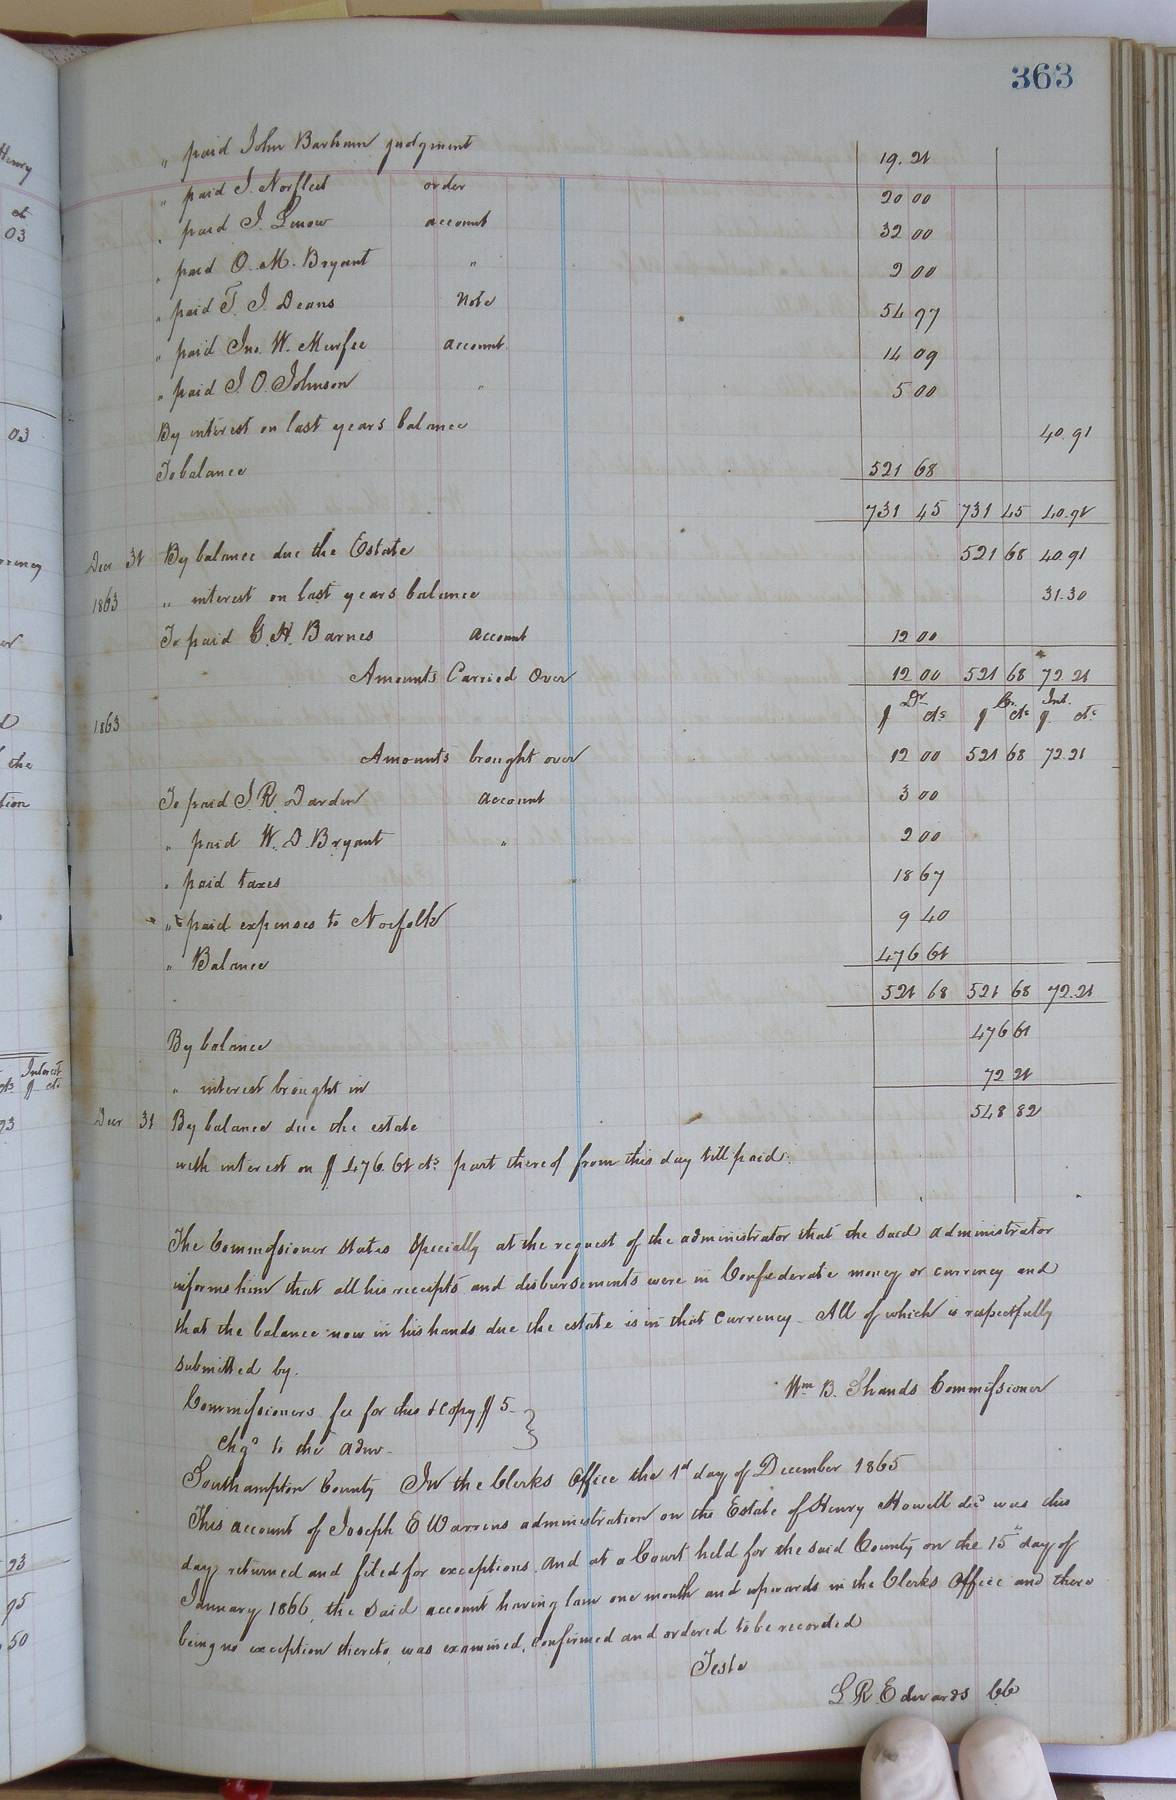 363
" paid John Barham judgment 19.21
" paid J. Norfleet order 20 00
" paid J. Lenow account 32 00
" paid O. M. Bryant " 9 00
" paid T. J. Deans Note 54 97
" paid Jno. W. Murfee account 14 09
" paid J. O. Johnson " 5 00
By interest on last years balance 40.91
To balance 521 68
731 45 731 45 40.91
Decr 31 By balance due the Estate 521 68 40.91
1863 " interest on last years balance 31.30
To paid G. H. Barnes account 12 00
Amounts Carried Over 12 00 521 68 72 21
Dr Cr. Int.
1863 $ cts $ cts $ cts
Amounts brought over 12 00 521 68 72.21
To paid J. R. Darden account 3 00
" paid W. D. Bryant " 2 00
" paid taxes 18 67
" paid expenses to Norfolk 9 40
" Balance 476 61
521 68 521 68 72.21
By balance 476 61
" interest brought in 72 21
Decr 31 By balance due the estate 548 82
with interest on $476.61 cts part thereof from this day till paid.
The Commissioner states specially at the request of the administrator that the said administrator
informs him that all his receipts and disbursements were in Confederate money or currency and
that the balance now in his hands due the estate is in that currency. All of which is respectfully
submitted by.
Wm B. Shands Commissioner
Commissioners fee for this & copy $5.
Chgd to the admr.
Southampton County In the Clerks Office the 1st day of December 1865
This account of Joseph E Warrens administration on the Estate of Henry Howell decd was this
day returned and filed for exceptions, and at a Court held for the said County on the 15th day of
January 1866, the said account having lain one month and upwards in the Clerks Office and there
being no exception thereto, was examined, confirmed and ordered to be recorded
Teste
L R Edwards CC
Henry
cts
03
03
the
tion
Interest
cts $ cts
93
93
95
50